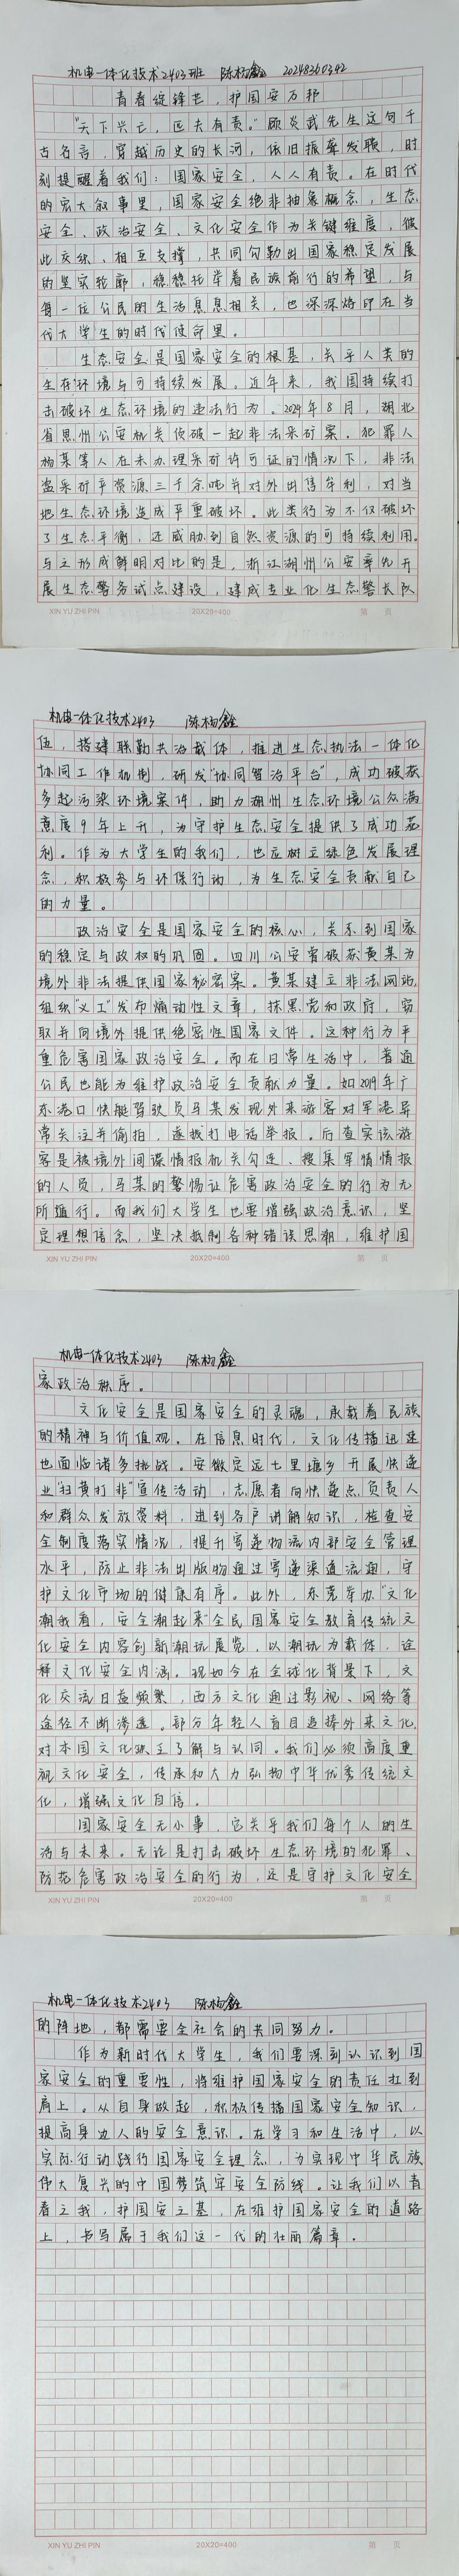 机电一体化技术2403班 陈杨鑫 20248300342
青春绽锋芒，护国安万邦
“天下兴亡，匹夫有责。”顾炎武先生这句千
古名言，穿越历史的长河，依旧振聋发聩，时
刻提醒着我们：国家安全，人人有责。在时代
的宏大叙事里，国家安全绝非抽象概念，生态
安全、政治安全、文化安全作为关键维度，彼
此交织、相互支撑，共同勾勒出国家稳定发展
的坚实轮廓，稳稳托举着民族前行的希望，与
每一位公民的生活息息相关，也深深烙印在当
代大学生的时代使命里。
生态安全是国家安全的根基，关乎人类的
生存环境与可持续发展。近年来，我国持续打
击破坏生态环境的违法行为。2024年8月，湖北
省恩州公安机关侦破一起非法采矿案。犯罪人
杨某等人在未办理采矿许可证的情况下，非法
盗采矿产资源三千余吨并对外出售牟利，对当
地生态环境造成严重破坏。此类行为不仅破坏
了生态平衡，还威胁到自然资源的可持续利用。
与之形成鲜明对比的是，浙江湖州公安率先开
展生态警务试点建设，建成专业化生态警长队
XIN YU ZHI PIN 20X20=400 第 页
机电一体化技术2403 陈杨鑫
伍，搭建联勤共治载体，推进生态执法一体化
协同工作机制，研发“协同智治平台”，成功破获
多起污染环境案件，助力湖州生态环境公众满
意度9年上升，为守护生态安全提供了成功范
利。作为大学生的我们，也应树立绿色发展理
念，积极参与环保行动，为生态安全贡献自己
的力量。
政治安全是国家安全的核心，关系到国家
的稳定与政权的巩固。四川公安曾破获黄某为
境外非法提供国家秘密案。黄某建立非法网站，
组织“义工”发布煽动性文章，抹黑党和政府，窃
取并向境外提供绝密性国家文件。这种行为严
重危害国家政治安全。而在日常生活中，普通
公民也能为维护政治安全贡献力量。如2019年广
东港口快艇驾驶员马某发现外来游客对军港异
常关注并偷拍，遂拨打电话举报。后查实该游
客是被境外间谍情报机关勾连、搜集军情情报
的人员，马某的警惕让危害政治安全的行为无
所遁行。而我们大学生也要增强政治意识，坚
定理想信念，坚决抵制各种错误思潮，维护国
XIN YU ZHI PIN 20X20=400 第 页
机电一体化技术2403 陈杨鑫
家政治秩序。
文化安全是国家安全的灵魂，承载着民族
的精神与价值观。在信息时代，文化传播迅速
也面临诸多挑战。安徽定远七里塘乡开展快递
业“扫黄打非”宣传活动，志愿者向快递点负责人
和群众发放资料，进到各户讲解知识，检查安
全制度落实情况，提升寄递物流内部安全管理
水平，防止非法出版物通过寄递渠道流通，守
护文化市场的健康有序。此外，东莞举办“文化
潮我看，安全潮起来”全民国家安全教育传统文
化安全内容创新潮玩展览，以潮玩为载体，诠
释文化安全内涵。现如今在全球化背景下，文
化交流日益频繁，西方文化通过影视、网络等
途径不断渗透。部分年轻人盲目追捧外来文化，
对本国文化缺乏了解与认同。我们必须高度重
视文化安全，传承和大力弘扬中华优秀传统文
化，增强文化自信。
国家安全无小事，它关乎我们每个人的生
活与未来。无论是打击破坏生态环境的犯罪、
防范危害政治安全的行为，还是守护文化安全
XIN YU ZHI PIN 20X20=400 第 页
机电一体化技术2403 陈杨鑫
的阵地，都需要全社会的共同努力。
作为新时代大学生，我们要深刻认识到国
家安全的重要性，将维护国家安全的责任扛到
肩上。从自身做起，积极传播国家安全知识，
提高身边人的安全意识。在学习和生活中，以
实际行动践行国家安全理念，为实现中华民族
伟大复兴的中国梦筑牢安全防线。让我们以青
春之我，护国安之基，在维护国家安全的道路
上，书写属于我们这一代的壮丽篇章。
XIN YU ZHI PIN 20X20=400 第 页